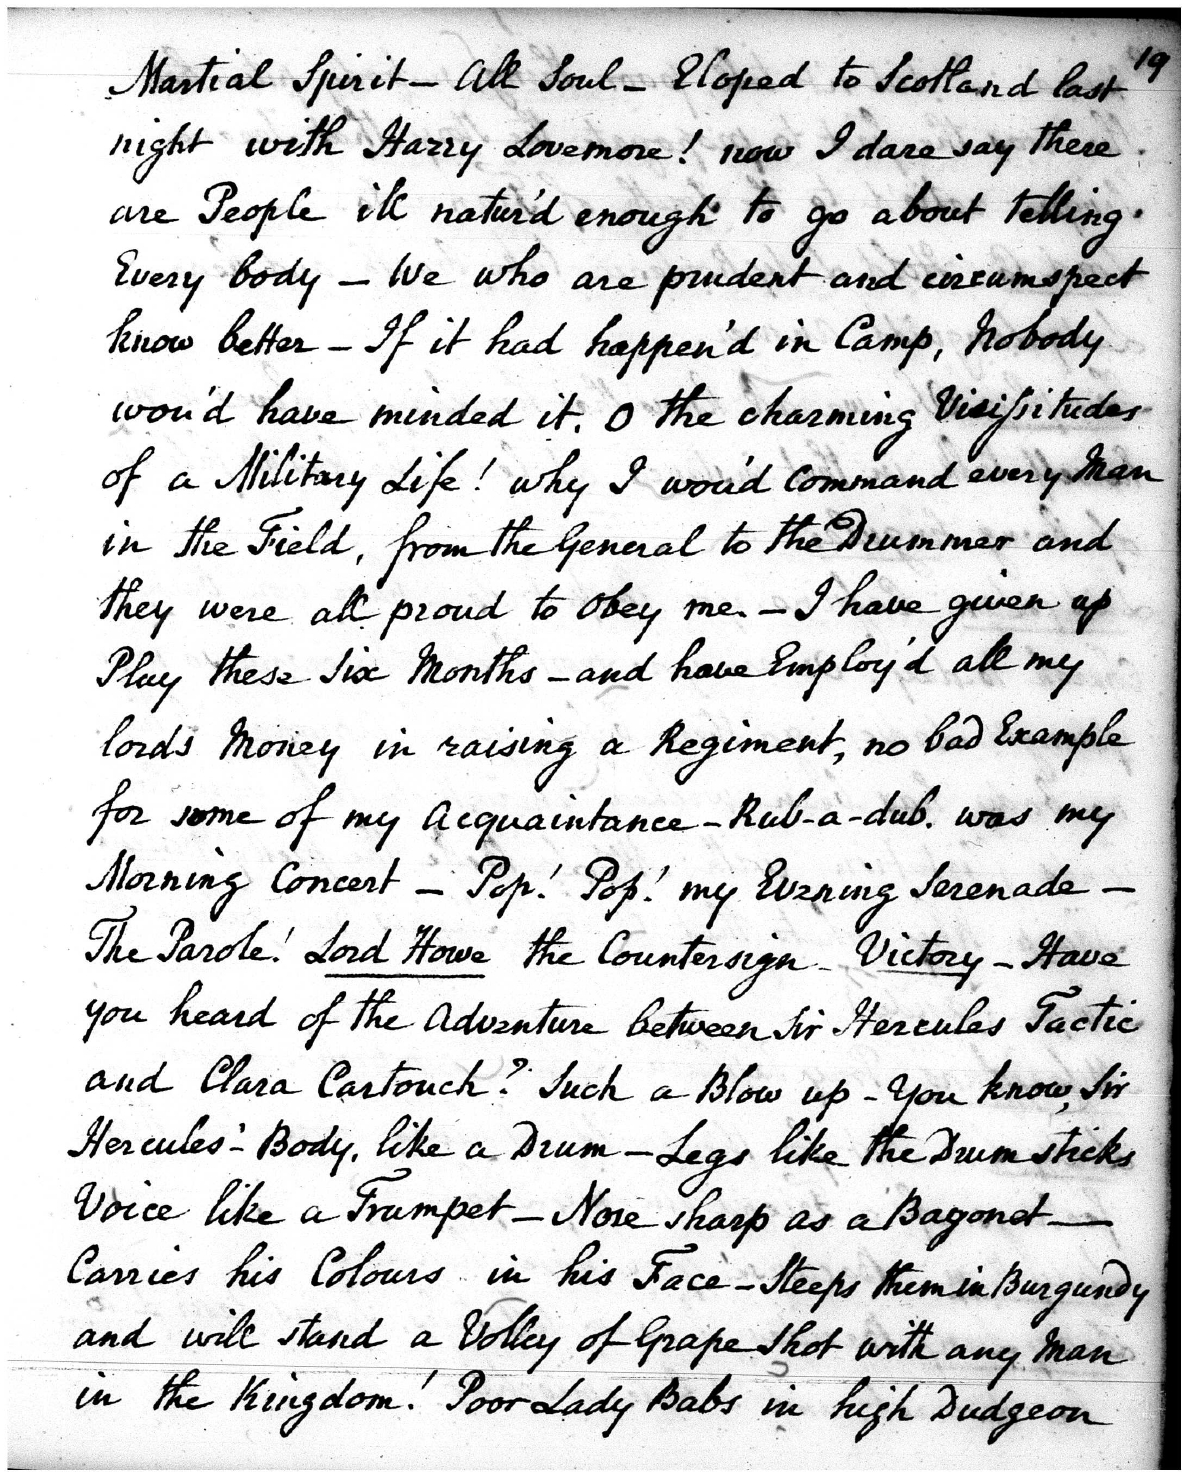 19
Martial Spirit - All Soul - Eloped to Scotland last
night with Harry Lovemore! now I dare say there
are People ill natur'd enough to go about telling
Every body - We who are prudent and circumspect
know better - If it had happen'd in Camp, Nobody
wou'd have minded it. O the charming Vicissitudes
of a Military Life! why I wou'd Command every Man
in the Field, from the General to the Drummer and
they were all proud to Obey me. - I have given up
Play these Six Months - and have Employ'd all my
lords Money in raising a Regiment, no bad Example
for some of my Acquaintance - Rub-a-dub. was my
Morning Concert - Pop! Pop! my Evening Serenade -
The Parole! Lord Howe the Countersign - Victory - Have
you heard of the Adventure between Sir Hercules Tactic
and Clara Cartouch? Such a Blow up - You know, Sir
Hercules - Body, like a Drum - Legs like the Drum sticks
Voice like a Trumpet - Nose sharp as a Bagonet -
Carries his Colours in his Face - Steeps them in Burgundy
and will stand a Volley of Grape Shot with any Man
in the Kingdom! Poor Lady Babs in high Dudgeon